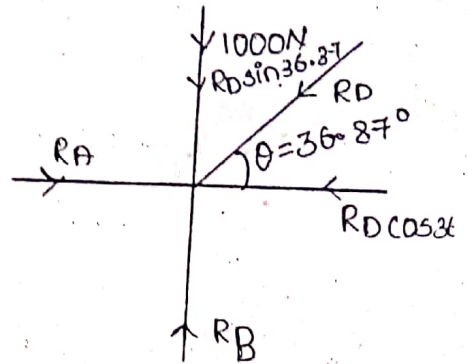 1000N
RD sin 36.87
RD
θ=36.87°
RA
RD cos36
RB